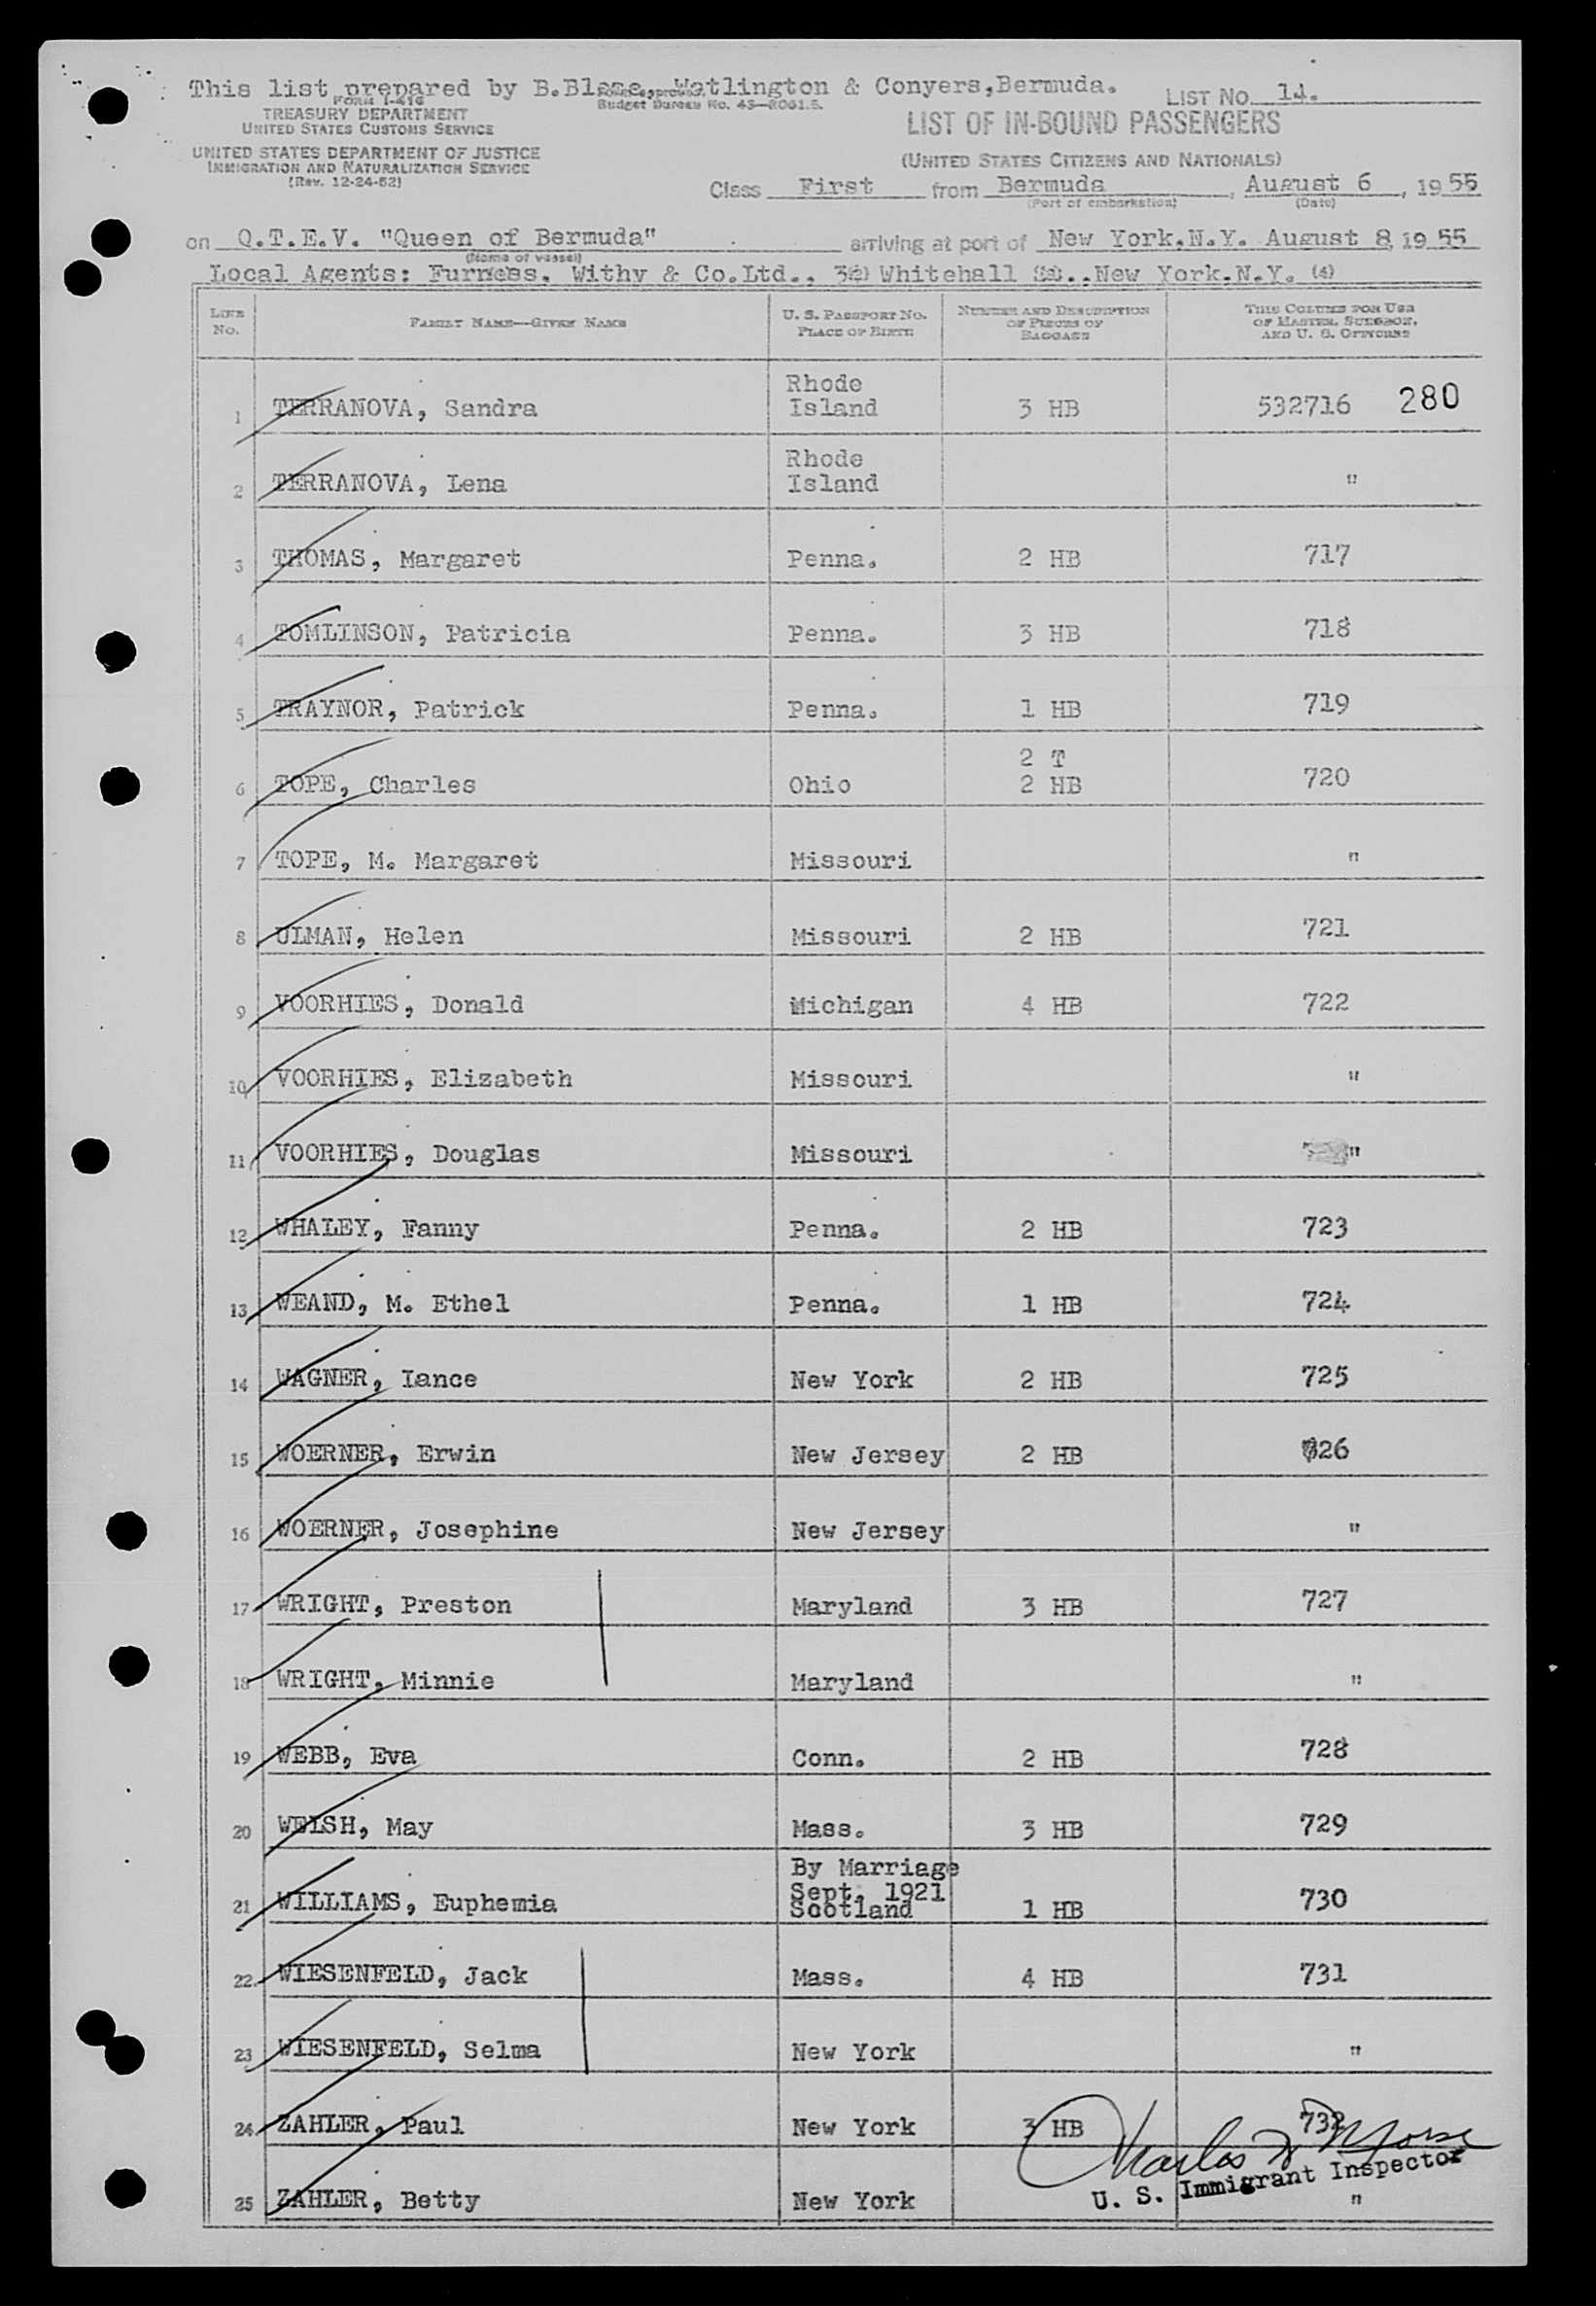 This list prepared by B. Watlington & Conyers, Bermuda.
LIST NO. 14.
FORM I-416
Budget Bureau No. 43—R061.5.
TREASURY DEPARTMENT
UNITED STATES CUSTOMS SERVICE
LIST OF IN-BOUND PASSENGERS
UNITED STATES DEPARTMENT OF JUSTICE
IMMIGRATION AND NATURALIZATION SERVICE
(Rev. 12-24-52)
(UNITED STATES CITIZENS AND NATIONALS)
Class First from Bermuda, August 6, 1955
(Port of embarkation) (Date)
on Q.T.E.V. "Queen of Bermuda" arriving at port of New York.N.Y. August 8 1955
(Name of vessel)
Local Agents: Furness, Withy & Co.Ltd., 34 Whitehall St..New York.N.Y. (4)
LINE NO. FAMILY NAME—GIVEN NAME U. S. PASSPORT NO. PLACE OF BIRTH NUMBER AND DESCRIPTION OF PIECES OF BAGGAGE THIS COLUMN FOR USE OF MASTER, SURGEON, AND U. S. OFFICERS
1 TERRANOVA, Sandra Rhode Island 3 HB 532716 280
2 TERRANOVA, Lena Rhode Island "
3 THOMAS, Margaret Penna. 2 HB 717
4 TOMLINSON, Patricia Penna. 3 HB 718
5 TRAYNOR, Patrick Penna. 1 HB 719
6 TOPE, Charles Ohio 2 T 2 HB 720
7 TOPE, M. Margaret Missouri "
8 ULMAN, Helen Missouri 2 HB 721
9 VOORHIES, Donald Michigan 4 HB 722
10 VOORHIES, Elizabeth Missouri "
11 VOORHIES, Douglas Missouri "
12 WHALEY, Fanny Penna. 2 HB 723
13 WEAND, M. Ethel Penna. 1 HB 724
14 WAGNER, Lance New York 2 HB 725
15 WOERNER, Erwin New Jersey 2 HB 726
16 WOERNER, Josephine New Jersey "
17 WRIGHT, Preston Maryland 3 HB 727
18 WRIGHT, Minnie Maryland "
19 WEBB, Eva Conn. 2 HB 728
20 WELSH, May Mass. 3 HB 729
21 WILLIAMS, Euphemia By Marriage Sept. 1921 Scotland 1 HB 730
22 WIESENFELD, Jack Mass. 4 HB 731
23 WIESENFELD, Selma New York "
24 ZAHLER, Paul New York 3 HB 732
Charles Morse
U. S. Immigrant Inspector
25 ZAHLER, Betty New York "